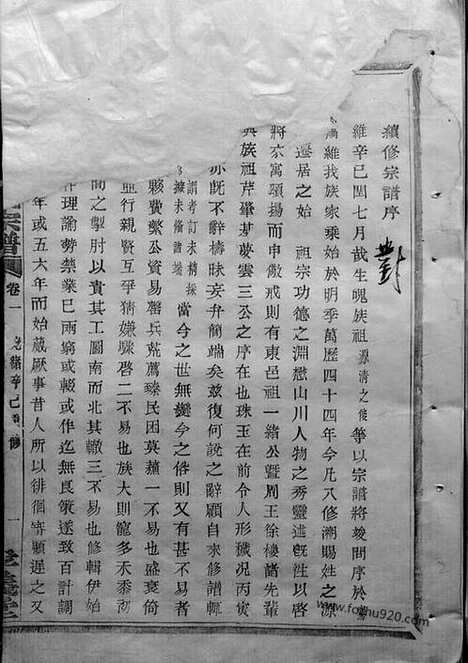 續修宗譜序
維辛巳閏七月哉生魄族祖源清之俊等以宗譜將竣問序於
維我族家乘始於明季萬歷四十四年今凡八修溯賜姓之源
遷居之始 祖宗功德之淵懋山川人物之秀靈述旣詳以啓
將示寓頌揚而申儆戒則有東邑祖一緒公暨周王徐樓諸先輩
與族祖芹畢某夢雲三公之序在也珠玉在前令人形穢况丙寅
亦既不辭檮昧妄弁簡端矣茲復何說之辭顧自來修譜輒
謂考訂未精採
摭未備諸端 當今之世無難今之俗則又有甚不易者
骸費繁公資易罄兵荒薦臻民困莫蘇一不易也盛衰倚
並行親賢互爭猜嫌驟啓二不易也族大則寵多禾黍
間之掣肘以貴其工圖南而北其轍三不易也修輯伊始
作理諭勢禁業已兩窮或輟或作迄無良策遂致百計調
年或五六年而始蕆厥事昔人所以徘徊審顧遲之又
宗譜
卷一
光緒辛巳重修
一
對
www.foxhu920.com